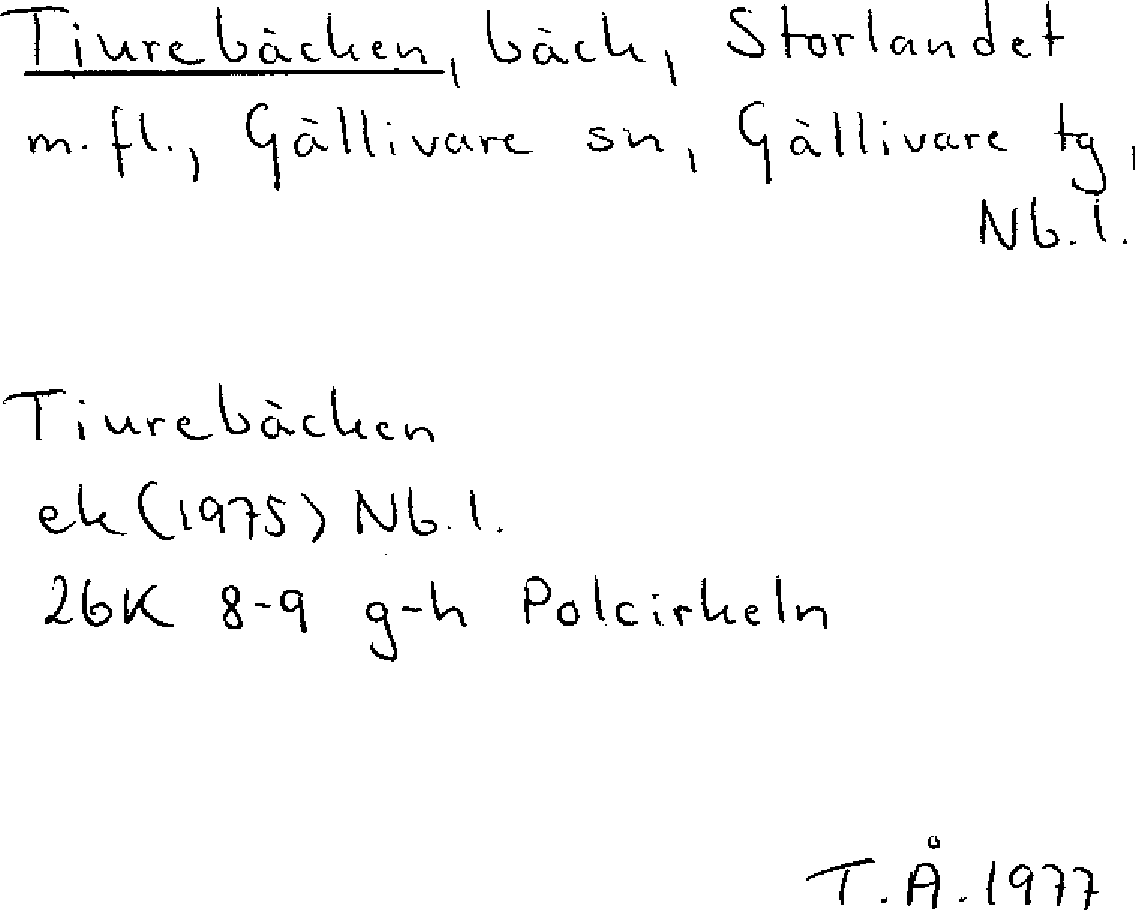 Tiurebäcken, bäck, Storlandet
m.fl., Gällivare sn, Gällivare tg,
Nb.l.
Tiurebäcken
ek (1975) Nb.l.
26K 8-9 g-h Polcirkeln
T.Å.1977